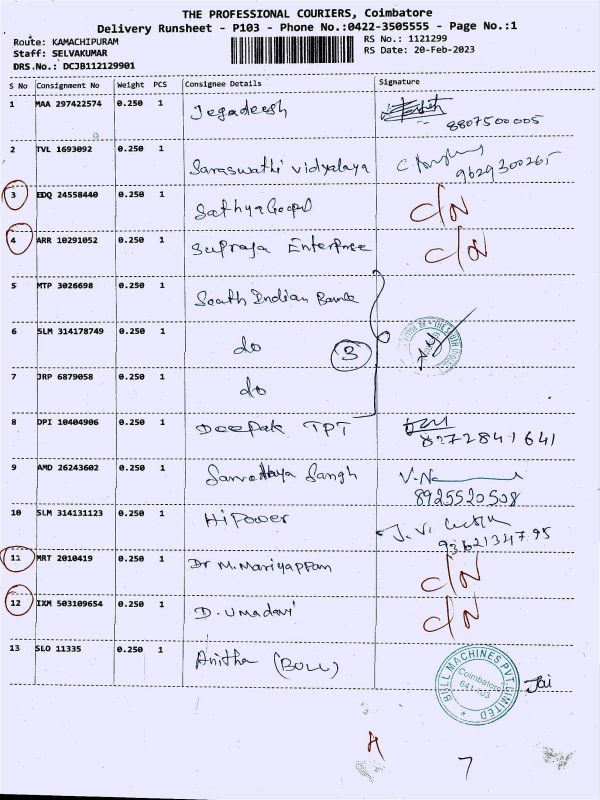 THE PROFESSIONAL COURIERS, Coimbatore
Delivery Runsheet - P103 - Phone No.:0422-3505555 - Page No.:1
Route: KAMACHIPURAM
RS No.: 1121299
Staff: SELVAKUMAR
RS Date: 20-Feb-2023
DRS.No.: DCJB112129901
S No Consignment No Weight PCS Consignee Details Signature
1 MAA 297422574 0.250 1 Jegadeesh
8807500005
2 TVL 1693092 0.250 1 Saraswathi vidyalaya
9629300265
3 EDQ 24558440 0.250 1 SathyaGopal C/N
4 ARR 10291052 0.250 1 Supraja Enterprise C/N
5 MTP 3026698 0.250 1 South Indian Bank
6 SLM 314178749 0.250 1 do 3
7 JRP 6879058 0.250 1 do
8 DPI 10404906 0.250 1 Deepak TPT
8272841641
9 AMD 26243602 0.250 1 Sangh
8925520508
10 SLM 314131123 0.250 1 HiPower
9362134795
11 MRT 2010419 0.250 1 Dr M. Mariyappan C/N
12 IXM 503109654 0.250 1 D. Umadavi C/N
13 SLO 11335 0.250 1 Anitha (BULL)
BULL MACHINES PVT LIMITED
Coimbatore
641 103
Jai
A
7